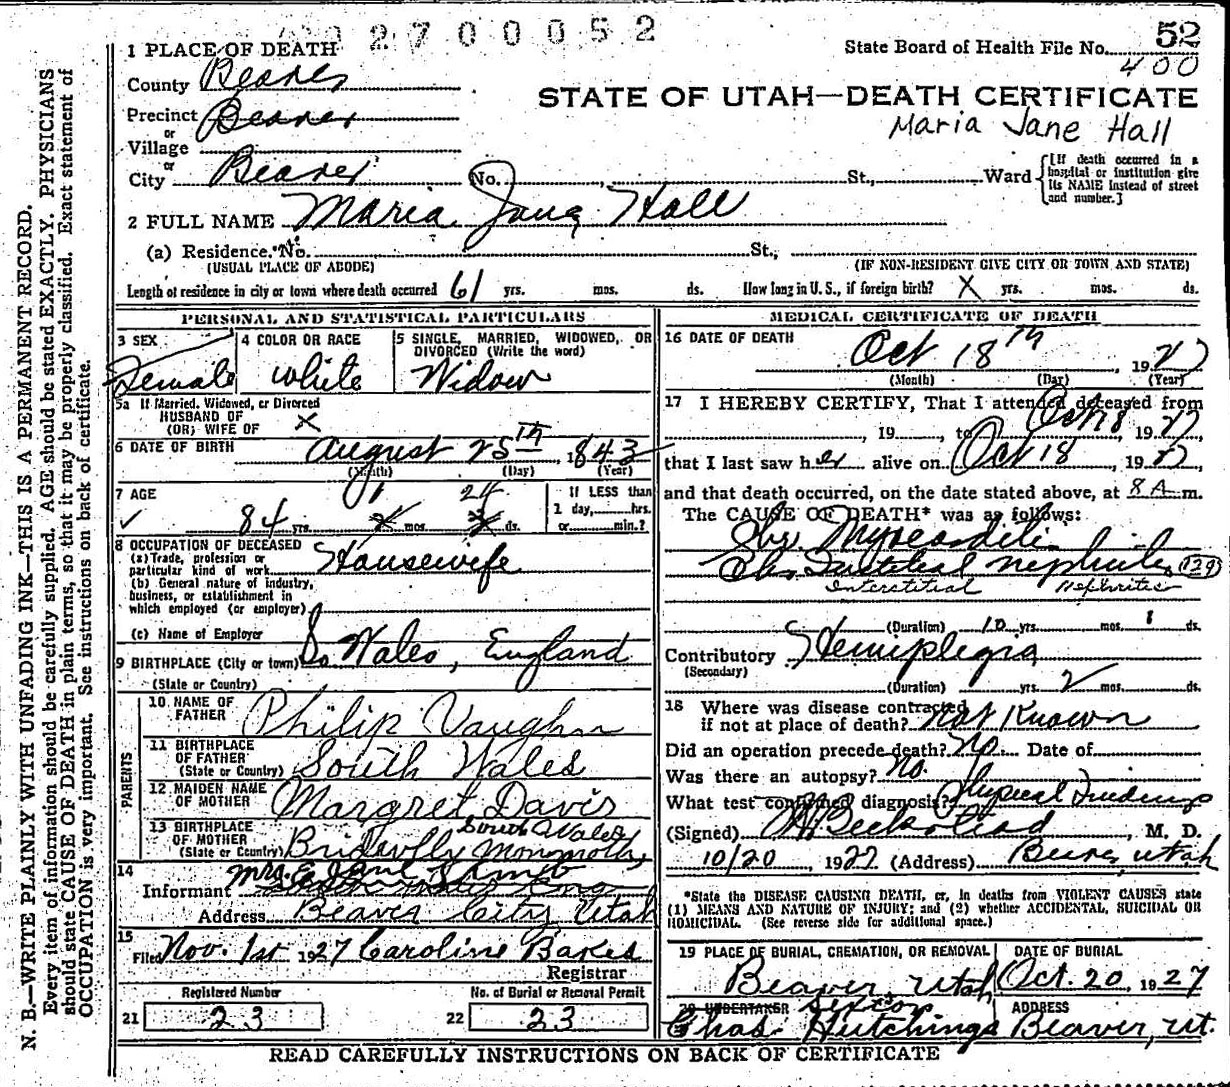 2700052
1 PLACE OF DEATH
State Board of Health File No. 52
400
County Beaver
STATE OF UTAH—DEATH CERTIFICATE
Precinct Beaver
Maria Jane Hall
or
Village
or
City Beaver No. St., Ward
[If death occurred in a hospital or institution give its NAME instead of street and number.]
2 FULL NAME Maria Jane Hall
(a) Residence. No. St.,
(USUAL PLACE OF ABODE) (IF NON-RESIDENT GIVE CITY OR TOWN AND STATE)
Length of residence in city or town where death occurred 61 yrs. mos. ds. How long in U.S., if foreign birth? X yrs. mos. ds.
PERSONAL AND STATISTICAL PARTICULARS
3 SEX
Female
4 COLOR OR RACE
white
5 SINGLE, MARRIED, WIDOWED, OR DIVORCED (Write the word)
Widow
5a If Married, Widowed, or Divorced
HUSBAND OF
(OR) WIFE OF X
6 DATE OF BIRTH August 25th, 1843
(Month) (Day) (Year)
7 AGE
1 24
84 yrs. mos. ds.
If LESS than
1 day, hrs.
or min.?
8 OCCUPATION OF DECEASED
(a) Trade, profession or
particular kind of work Housewife
(b) General nature of industry,
business, or establishment in
which employed (or employer)
(c) Name of Employer
9 BIRTHPLACE (City or town) So Wales, England
(State or Country)
PARENTS
10 NAME OF
FATHER Philip Vaughn
11 BIRTHPLACE
OF FATHER
(State or Country) South Wales
12 MAIDEN NAME
OF MOTHER Margret Davis
13 BIRTHPLACE
OF MOTHER South Wales
(State or Country)
14
Informant Mrs.
Address Beaver City Utah
15
Filed Nov. 1st 1927 Caroline Bakes
Registrar
Registered Number No. of Burial or Removal Permit
21 23 22 23
MEDICAL CERTIFICATE OF DEATH
16 DATE OF DEATH
Oct 18th, 1927
(Month) (Day) (Year)
17 I HEREBY CERTIFY, That I attended deceased from
, 19 , to Oct 18 1927
that I last saw her alive on Oct 18, 1927
and that death occurred, on the date stated above, at 8 A m.
The CAUSE OF DEATH* was as follows:
Myocarditis
129
Interstitial Nephritis
(Duration) 10 yrs. mos. ds.
Contributory Hemiplegia
(Secondary)
(Duration) yrs. 2 mos. ds.
18 Where was disease contracted
if not at place of death? Not Known
Did an operation precede death? No. Date of
Was there an autopsy? No.
What test confirmed diagnosis? Physical Findings
(Signed) Beckstead, M. D.
10/20 1927 (Address) Beaver, Utah
*State the DISEASE CAUSING DEATH, or, in deaths from VIOLENT CAUSES state
(1) MEANS AND NATURE OF INJURY; and (2) whether ACCIDENTAL, SUICIDAL OR
HOMICIDAL. (See reverse side for additional space.)
19 PLACE OF BURIAL, CREMATION, OR REMOVAL
Beaver, Utah
DATE OF BURIAL
Oct. 20, 1927
20 UNDERTAKER Sexton
Chas. Hutchings
ADDRESS
Beaver, Ut.
READ CAREFULLY INSTRUCTIONS ON BACK OF CERTIFICATE
N. B.—WRITE PLAINLY WITH UNFADING INK—THIS IS A PERMANENT RECORD.
Every item of information should be carefully supplied. AGE should be stated EXACTLY. PHYSICIANS
should state CAUSE OF DEATH in plain terms, so that it may be properly classified. Exact statement of
OCCUPATION is very important. See instructions on back of certificate.